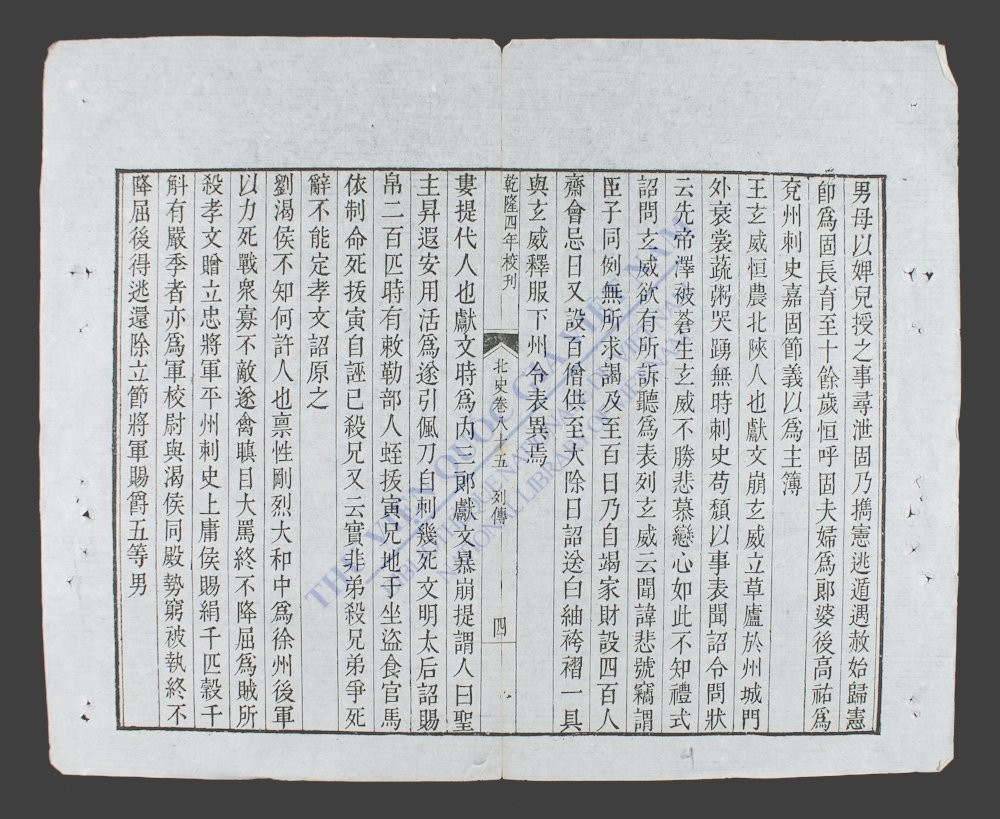 男母以婢兒授之事尋泄固乃攜憲逃遁遇赦始歸憲
即爲固長育至十餘歲恒呼固夫婦爲郞婆後高祐爲
兗州刺史嘉固節義以爲主簿
王玄威恒農北陜人也獻文崩玄威立草廬於州城門
外衰裳蔬粥哭踴無時刺史苟頹以事表聞詔令問狀
云先帝澤被蒼生玄威不勝悲慕戀心如此不知禮式
詔問玄威欲有所訴聽爲表列玄威云聞諱悲號竊謂
臣子同例無所求謁及至百日乃自竭家財設四百人
齋會忌日又設百僧供至大除日詔送白紬袴褶一具
與玄威釋服下州令表異焉
乾隆四年校刊
北史卷八十五 列傳
四
婁提代人也獻文時爲內三郎獻文暴崩提謂人曰聖
主昇遐安用活爲遂引佩刀自刺幾死文明太后詔賜
帛二百匹時有敕勒部人蛭拔寅兄地于坐盜食官馬
依制命死拔寅自誣已殺兄又云實非弟殺兄弟爭死
辭不能定孝文詔原之
劉渴侯不知何許人也禀性剛烈大和中爲徐州後軍
以力死戰衆寡不敵遂禽瞋目大罵終不降屈爲賊所
殺孝文贈立忠將軍平州刺史上庸侯賜絹千匹穀千
斛有嚴季者亦爲軍校尉與渴侯同殿勢窮被執終不
降屈後得逃還除立節將軍賜爵五等男
THƯ VIỆN QUỐC GIA VIỆT NAM
BIBLIOTHEQUE NATIONALE DU VIETNAM
NATIONAL LIBRARY OF VIETNAM
4